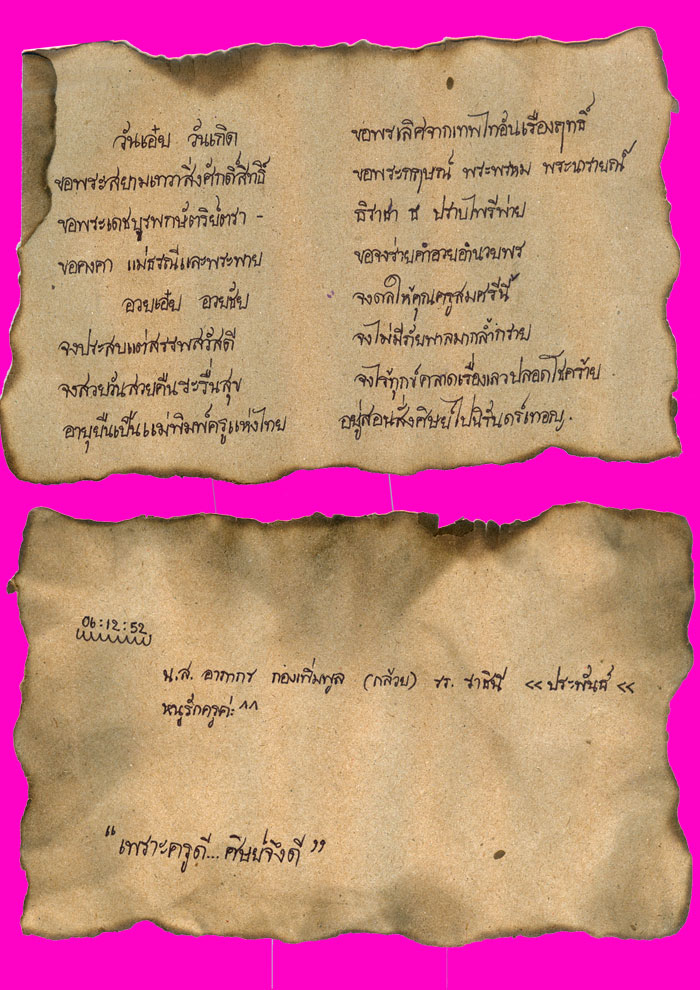 วันเอ๋ย วันเกิด
ขอพระสยามเทวาสิ่งศักดิ์สิทธิ์
ขอพระเดชบูรพกษัตริย์ตรา -
ขอคงคา แม่ธรณีและพระพาย
อวยเอ๋ย อวยชัย
จงประสบแต่สรรพสวัสดี
จงสวยวันสวยคืนระรื่นสุข
อายุยืนเป็นแม่พิมพ์ครูแห่งไทย
ขอพรเลิศจากเทพไทอันเรืองฤทธิ์
ขอพระกฤษณ์ พระพรหม พระนารายณ์
ธิราชา ธ ปราบไพรีพ่าย
ขอจงร่ายคำอวยอำนวยพร
จงดลให้คุณครูสมศรีนี้
จงไม่มีภัยพาลมากล้ำกราย
จงไร้ทุกข์คลาดเรื่องเลวปลอดโชคร้าย
อยู่สอนสั่งศิษย์ไปนิรันดร์เทอญ.
06:12:52
น.ส. อาภากร กองเพิ่มพูล (กล้วย) รร. ราชินี << ประพันธ์ <<
หนูรักครูค่ะ ^^
"เพราะครูดี... ศิษย์จึงดี"